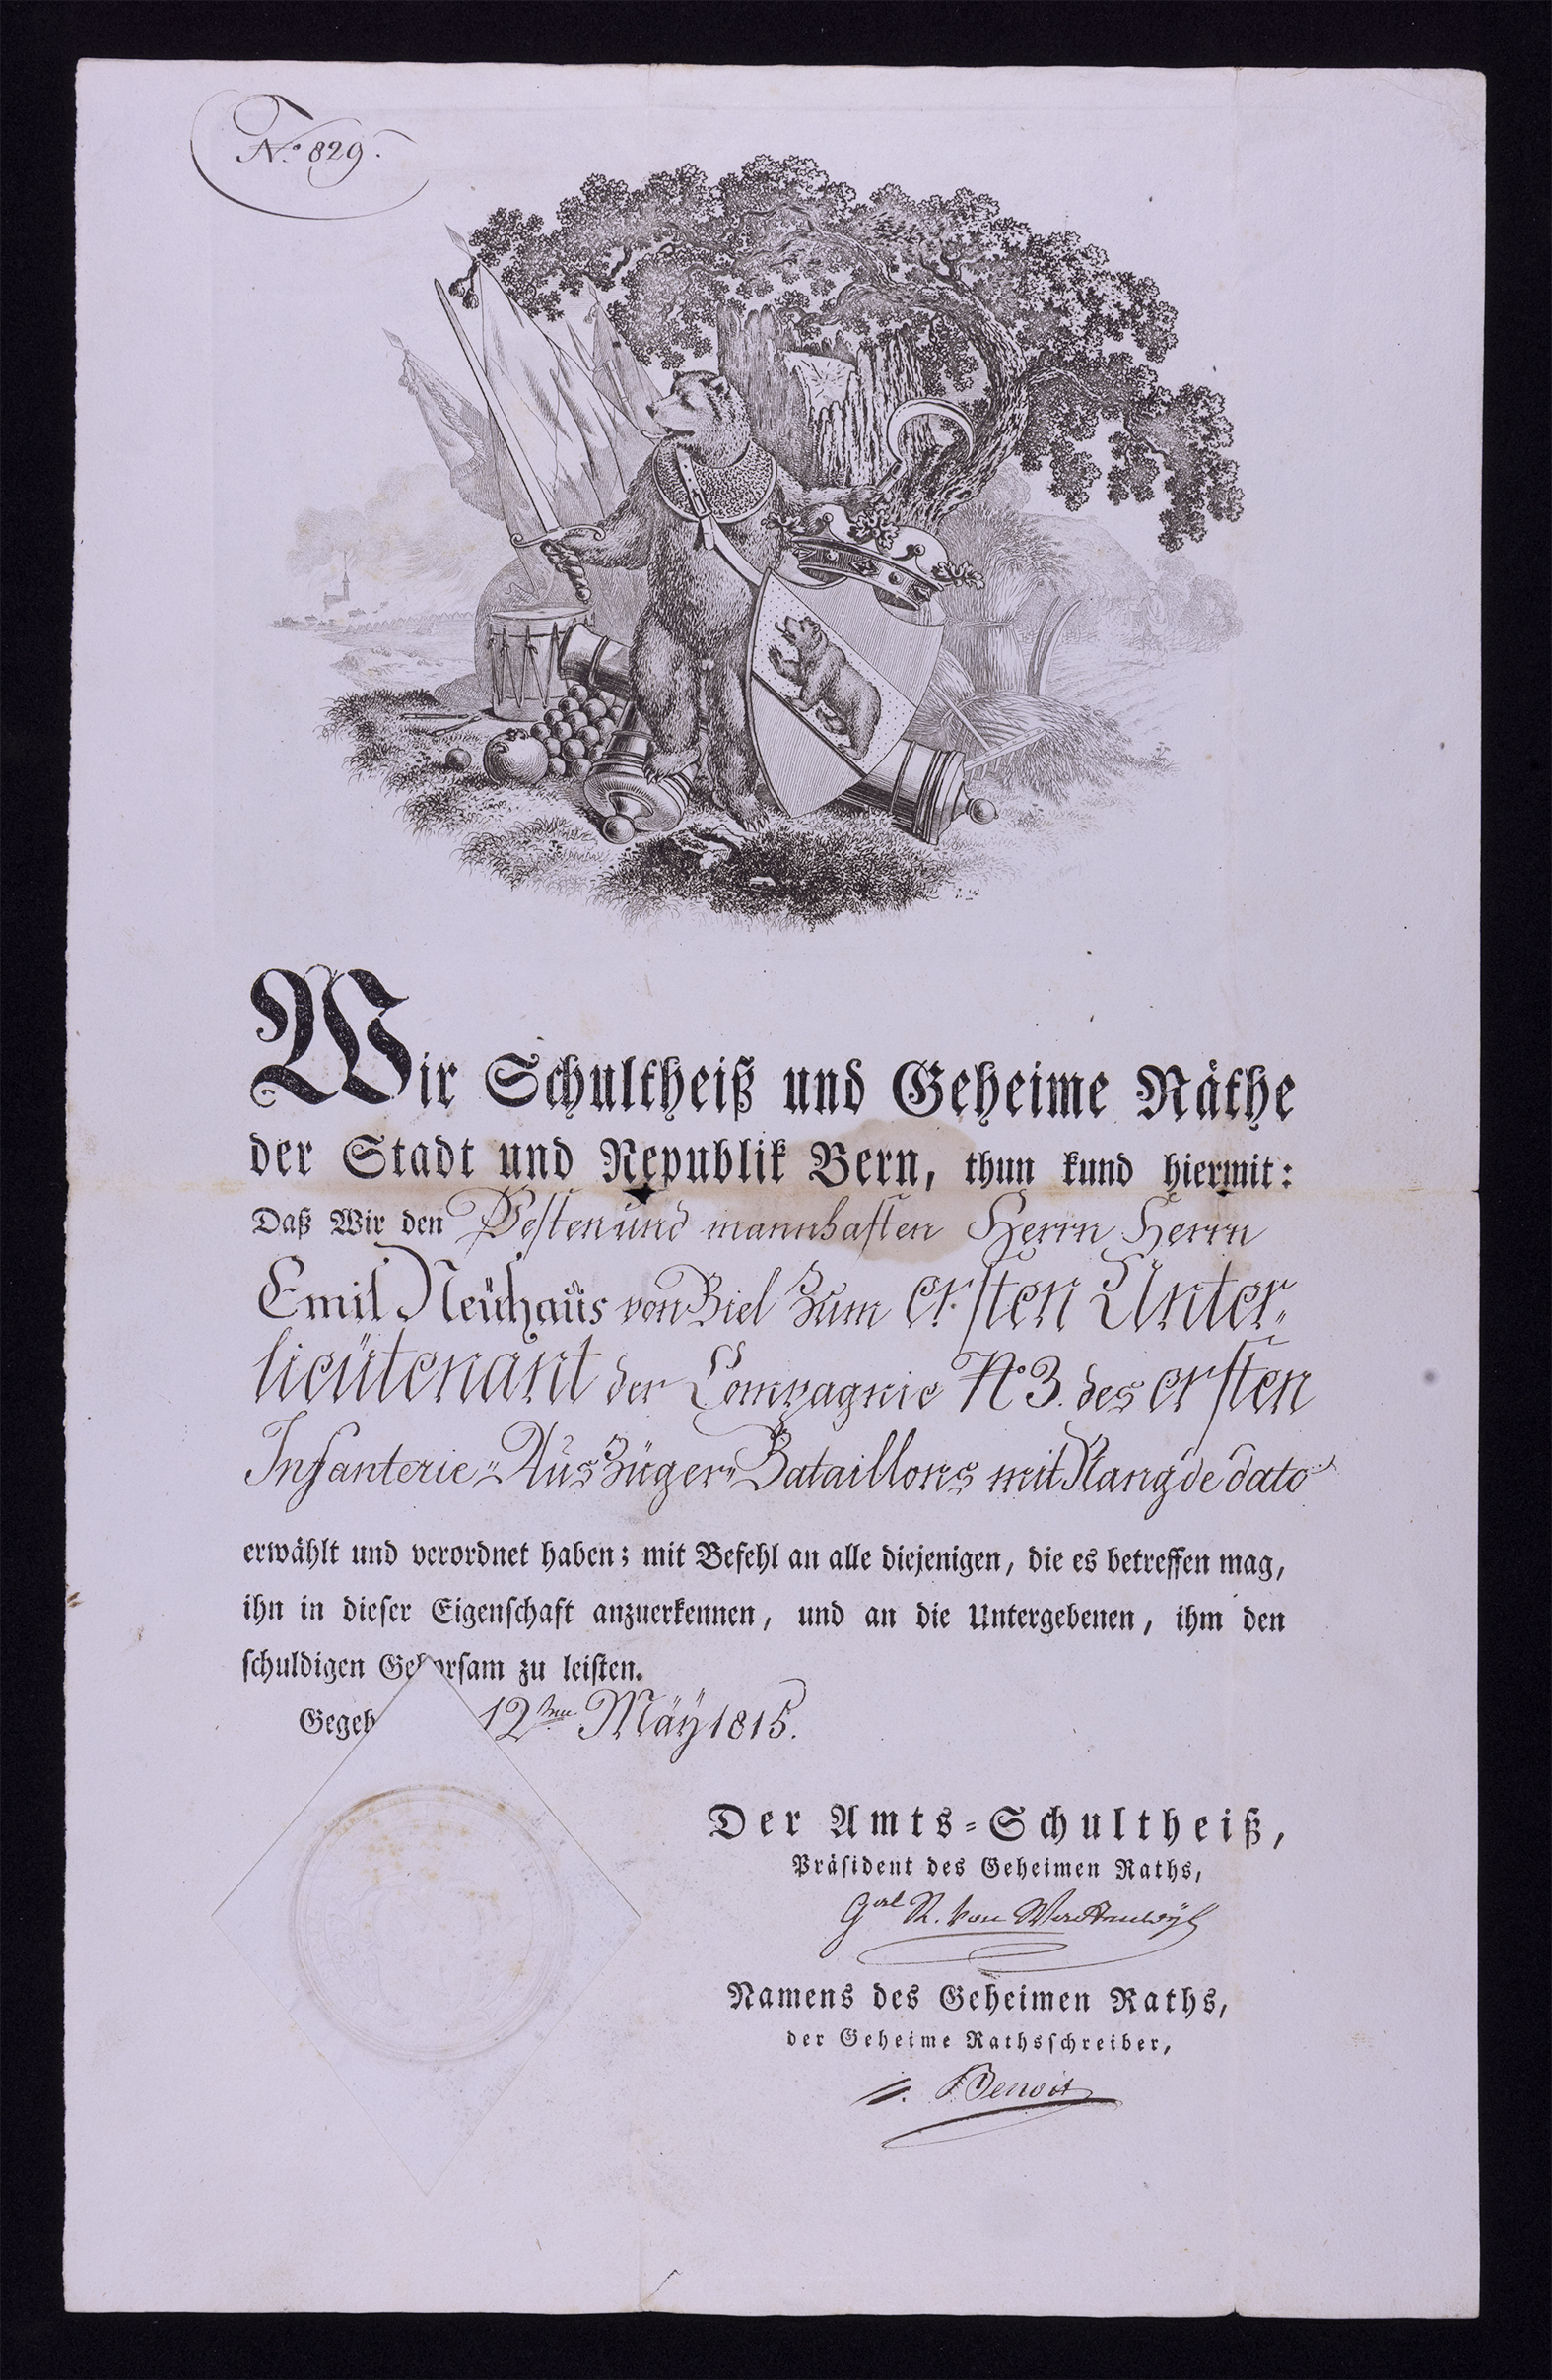 N.º 829.
Wir Schultheiß und Geheime Räthe
der Stadt und Republik Bern, thun kund hiermit:
Daß Wir den Vesten und mannhaften Herrn Herrn
Emil Neühaüs von Biel zum ersten Unter-
lieütenant der Compagnie Nº 3. des ersten
Infanterie-Auszüger-Bataillons mit Rang de dato
erwählt und verordnet haben; mit Befehl an alle diejenigen, die es betreffen mag,
ihn in dieser Eigenschaft anzuerkennen, und an die Untergebenen, ihm den
schuldigen Gehorsam zu leisten.
Gegeb 12ten Mäÿ 1815.
Der Amts-Schultheiß,
Präsident des Geheimen Raths,
R. von Wattenwÿl
Namens des Geheimen Raths,
der Geheime Rathsschreiber,
Benoit